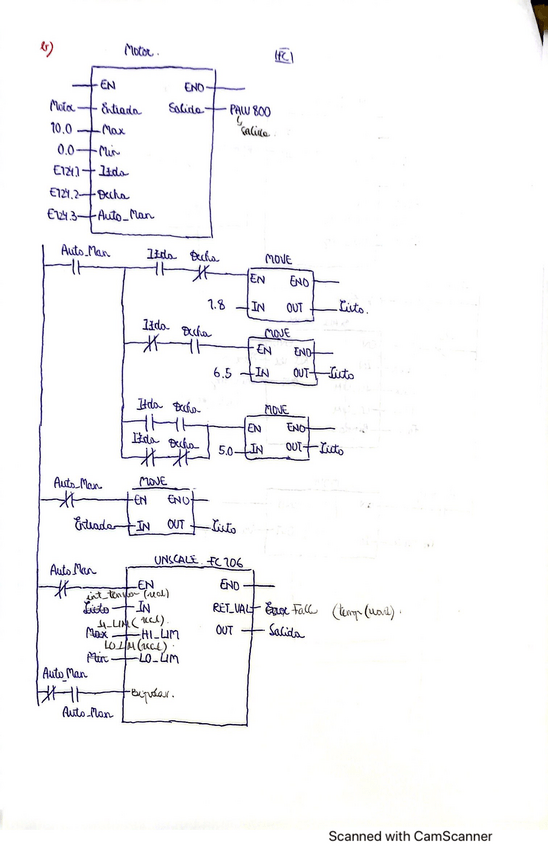 b)
Motor.
FC1
EN
ENO
Motor
Entrada
Salida
PAW 800
Salida
10.0
Max
0.0
Min
E124.1
Izda
E124.2
Dcha
E124.3
Auto_Man
Auto_Man
Izda
Dcha
MOVE
EN
ENO
1.8
IN
OUT
Listo.
Izda
Dcha
MOVE
EN
ENO
6.5
IN
OUT
Listo
Izda
Dcha
MOVE
EN
ENO
Izda
Dcha
5.0
IN
OUT
Listo
Auto_Man
MOVE
EN
ENO
Entrada
IN
OUT
Listo
UNSCALE FC106
Auto_Man
EN
ENO
int_tension (real)
Listo
IN
RET_VAL
Fallo
H_LIM (real)
Max
HI_LIM
OUT
Salida
LO_LIM (real)
Min
LO_LIM
Auto_Man
Bipolar.
Auto_Man
Scanned with CamScanner